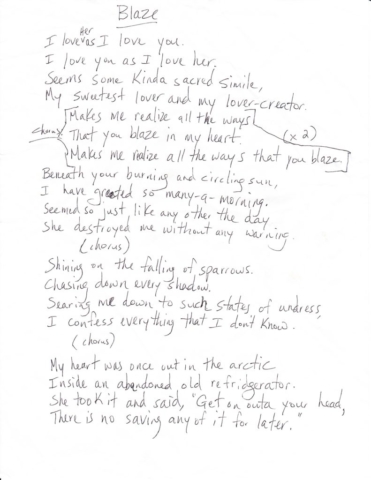 Blaze
I love her as I love you.
I love you as I love her.
Seems some Kinda sacred Simile,
My sweetest lover and my lover-creator.
Makes me realize all the ways
chorus That you blaze in my heart. (x2)
Makes me realize all the ways that you blaze
Beneath your burning and circling sun,
I have greeted so many-a-morning.
Seemed so just, like any other the day
She destroyed me without any warning.
(chorus)
Shining on the falling of sparrows.
Chasing down every shadow.
Searing me down to such states of undress,
I confess everything that I don't know.
(chorus)
My heart was once out in the arctic
Inside an abandoned old refridgerator.
She took it and said, "Get on outa your head,
There is no saving any of it for later."